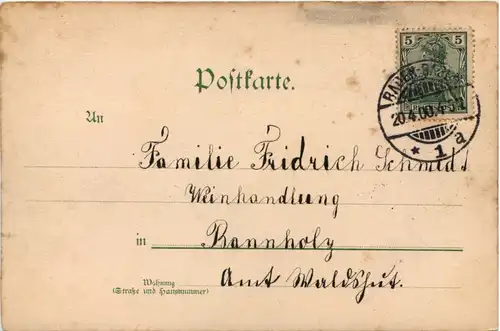 5 5
Postkarte.
BADEN-BADEN
20.4.00.4-5N
* 1 a
An
Familie Fridrich Schmidt
Weinhandlung
in Bannholz
Amt Waldshut.
Wohnung
(Straße und Hausnummer)